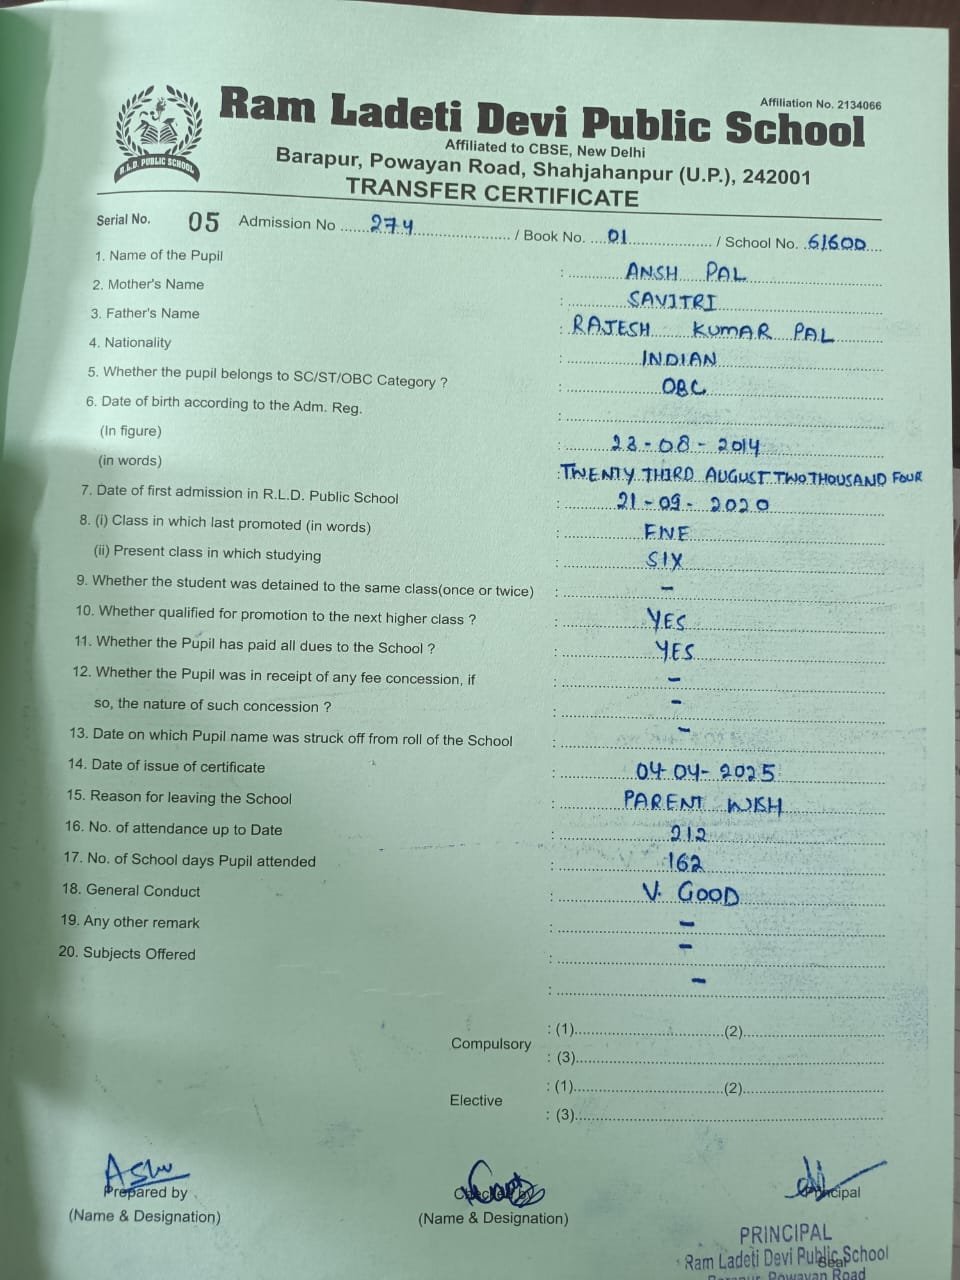 Affiliation No. 2134066
R.L.D. PUBLIC SCHOOL
Ram Ladeti Devi Public School
Affiliated to CBSE, New Delhi
Barapur, Powayan Road, Shahjahanpur (U.P.), 242001
TRANSFER CERTIFICATE
Serial No. 05 Admission No ......274...... / Book No. ....01...... / School No. .61600....
1. Name of the Pupil : ANSH PAL
2. Mother's Name : SAVITRI
3. Father's Name : RAJESH KUMAR PAL
4. Nationality : INDIAN
5. Whether the pupil belongs to SC/ST/OBC Category ? : OBC
6. Date of birth according to the Adm. Reg. :
(In figure) : 23-08-2014
(in words) : TWENTY THIRD AUGUST TWO THOUSAND FOUR
7. Date of first admission in R.L.D. Public School : 21-09-2020
8. (i) Class in which last promoted (in words) : FNE
(ii) Present class in which studying : SIX
9. Whether the student was detained to the same class(once or twice) : -
10. Whether qualified for promotion to the next higher class ? : YES
11. Whether the Pupil has paid all dues to the School ? : YES
12. Whether the Pupil was in receipt of any fee concession, if : -
so, the nature of such concession ? : -
13. Date on which Pupil name was struck off from roll of the School : -
14. Date of issue of certificate : 04-04-2025
15. Reason for leaving the School : PARENT WISH
16. No. of attendance up to Date : 212
17. No. of School days Pupil attended : 162
18. General Conduct : V. GOOD
19. Any other remark : -
20. Subjects Offered : -
: -
Compulsory : (1)..............(2)..............
: (3)..............
Elective : (1)..............(2)..............
: (3)..............
Prepared by Checked by Principal
(Name & Designation) (Name & Designation)
PRINCIPAL
Ram Ladeti Devi Public School
Seal
Barapur Powayan Road